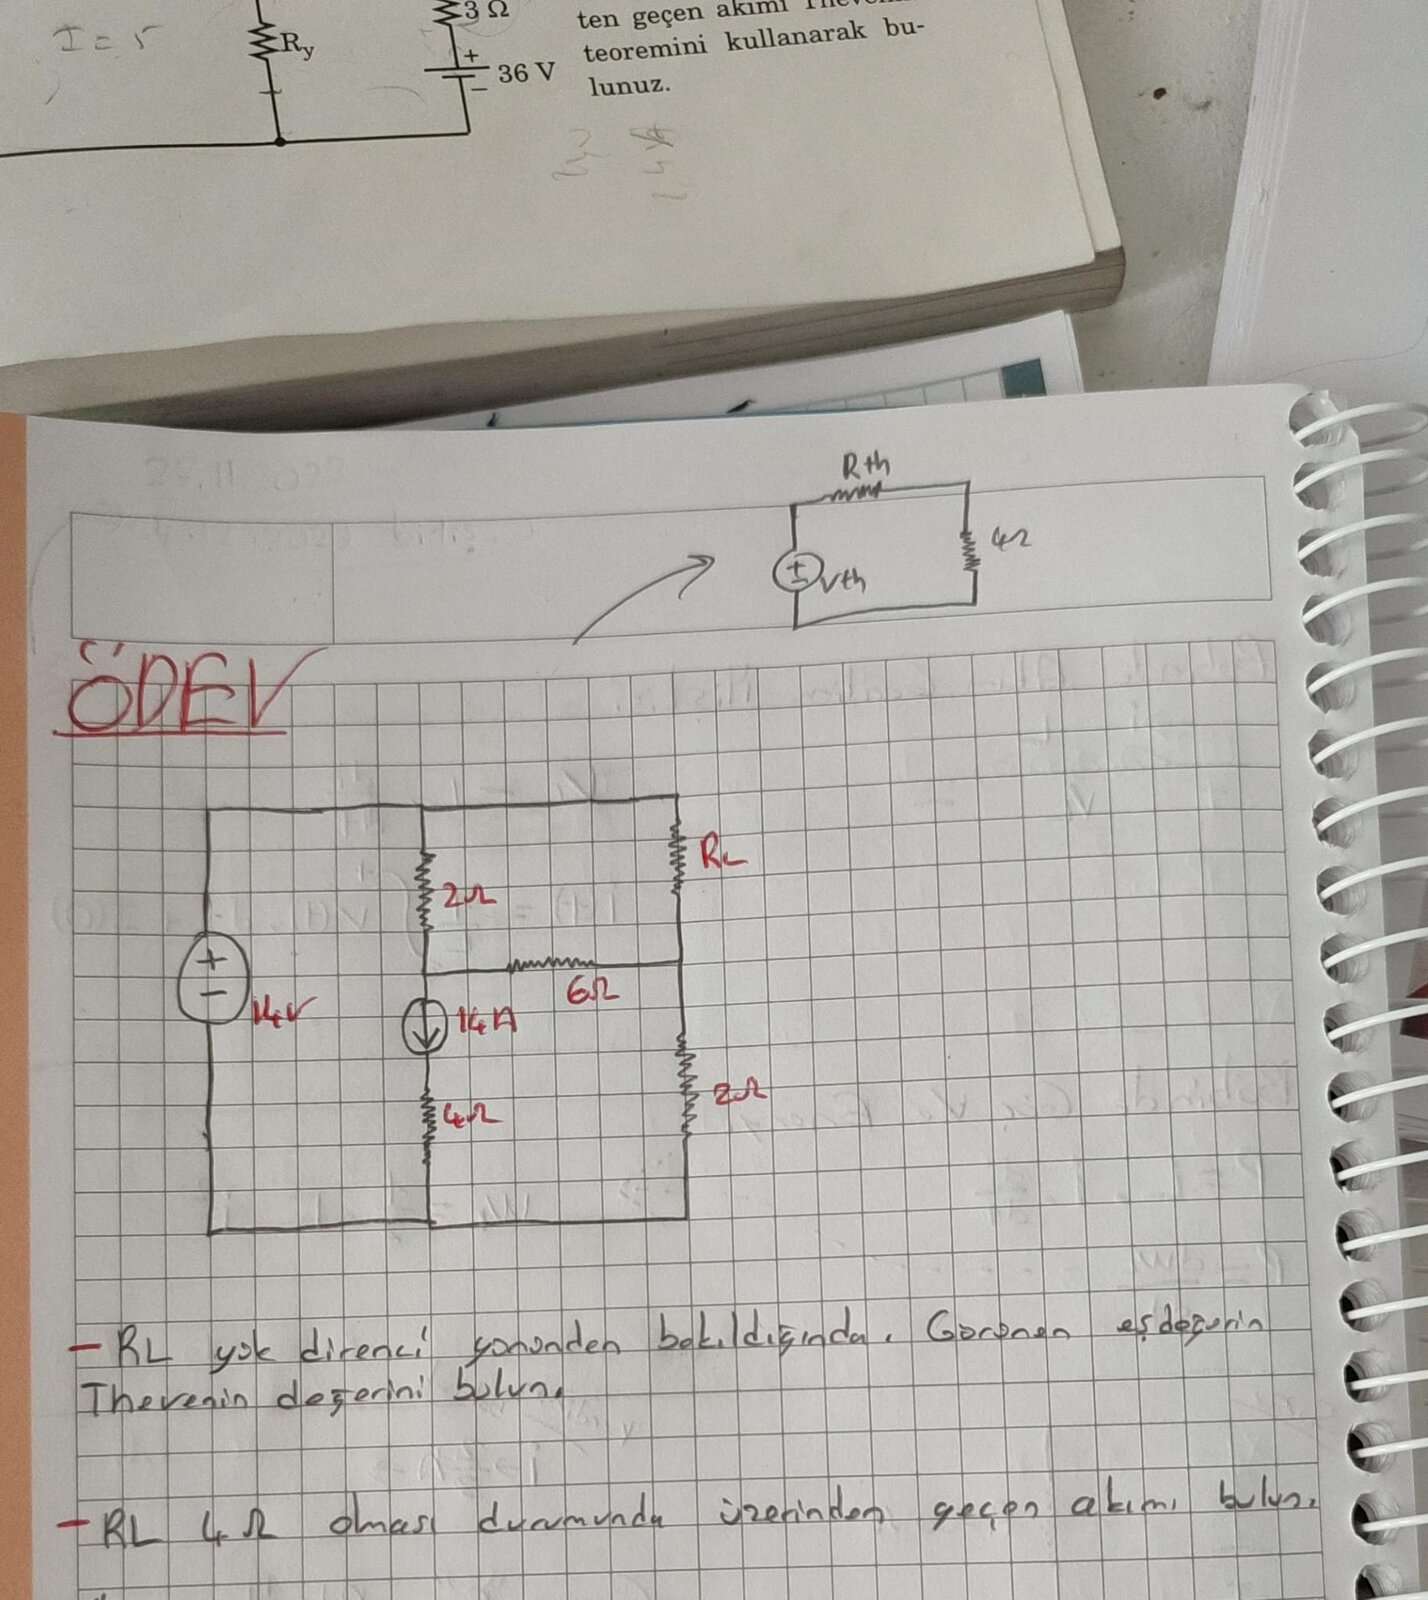 3 Ω
ten geçen akımı
I = 5
Ry
+
36 V
teoremini kullanarak bu-
−
lunuz.
Rth
4Ω
+
−
Vth
ÖDEV
RL
2Ω
+
−
14V
6Ω
14A
4Ω
2Ω
- RL yük direnci yönünden bakıldığında. Görünen eşdeğerin
Thevenin değerini bulun.
- RL 4 Ω olması durumunda üzerinden geçen akımı bulun.